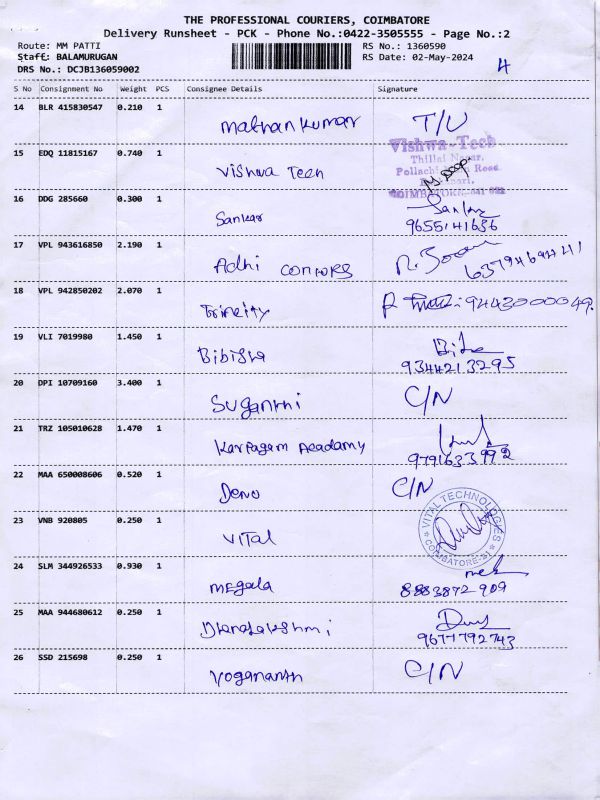 THE PROFESSIONAL COURIERS, COIMBATORE
Delivery Runsheet - PCK - Phone No.:0422-3505555 - Page No.:2
Route: MM PATTI RS No.: 1360590
Staff: BALAMURUGAN RS Date: 02-May-2024
DRS No.: DCJB136059002 4
S No Consignment No Weight PCS Consignee Details Signature
14 BLR 415830547 0.210 1 Mathan kumar T/U
15 EDQ 11815167 0.740 1 Vishwa Tech
Vishwa-Tech
Thillai Nagar,
Pollachi Main Road
COIMBATORE-641
16 DDG 285660 0.300 1 Sankar Sankar
9655141636
17 VPL 943616850 2.190 1 Adhi controls 6379469441
18 VPL 942850202 2.070 1 Trinity 9443000049.
19 VLI 7019980 1.450 1 Bibisha
9344213295
20 DPI 10709160 3.400 1 Suganthi C/N
21 TRZ 105010628 1.470 1 Karpagam Acadamy
9791633992
22 MAA 650008606 0.520 1 Denu C/N
23 VNB 920805 0.250 1 Vital
VITAL TECHNOLOGIES
COIMBATORE-21
24 SLM 344926533 0.930 1 Megala
8883872909
25 MAA 944680612 0.250 1 Dhanalakshmi
9677792743
26 SSD 215698 0.250 1 Yogananth C/N